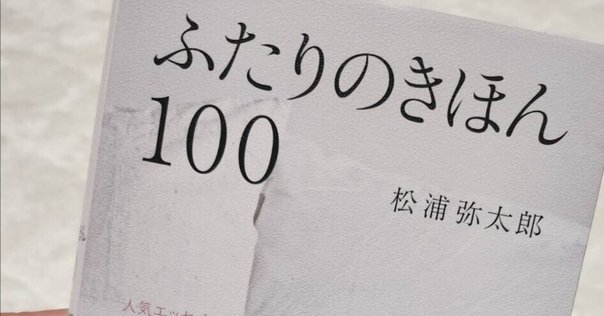 ふたりのきほん
100
松浦弥太郎
人気エッセイ